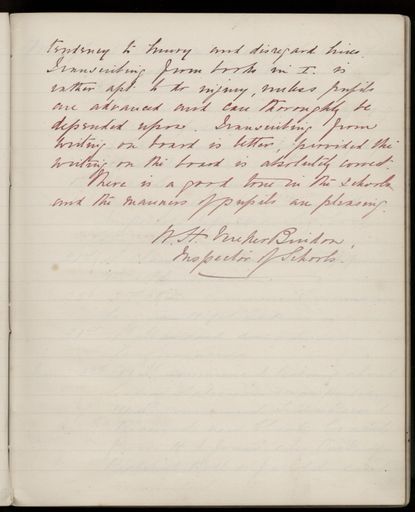 tendency to hurry and disregard lines.
Transcribing from books in I. is
rather apt to do injury, unless pupils
are advanced and can thoroughly be
depended upon. Transcribing from
writing on board is better, provided the
writing on the board is absolutely correct.
There is a good tone in the schools
and the manners of pupils are pleasing.
W. H. Bindon,
Inspector of Schools.